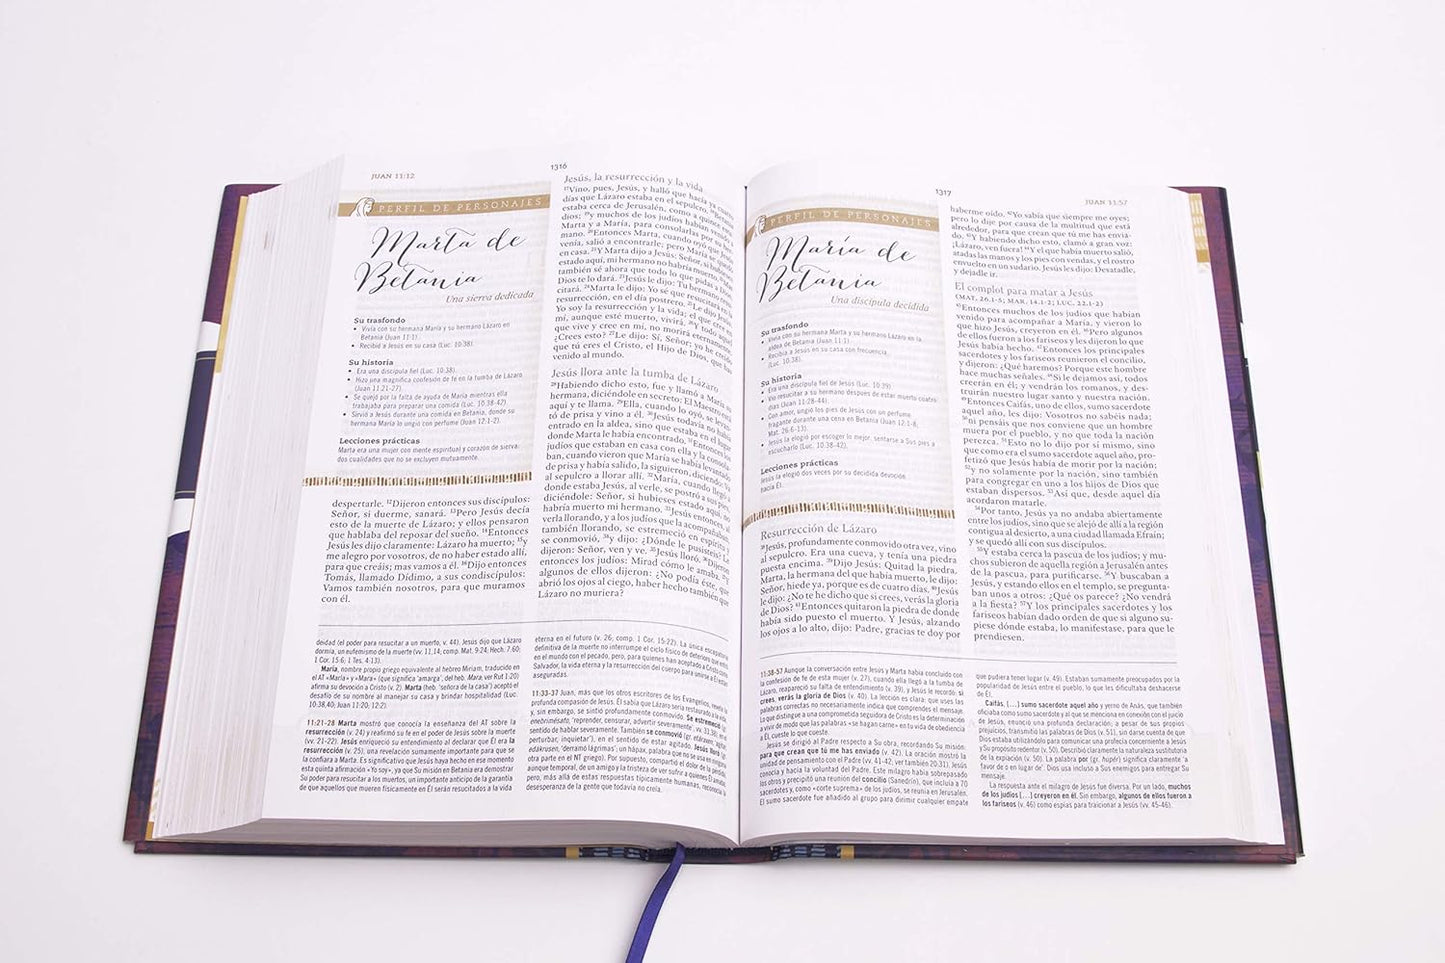 JUAN 11:12
1316
PERFIL DE PERSONAJES
Marta de
Betania
Una sierva dedicada
Su trasfondo
• Vivía con su hermana María y su hermano Lázaro en
Betania (Juan 11:1).
• Recibió a Jesús en su casa (Luc. 10:38).
Su historia
• Era una discípula fiel (Luc. 10:38).
• Hizo una magnífica confesión de fe en la tumba de Lázaro
(Juan 11:21-27).
• Se quejó por la falta de ayuda de María mientras ella
trabajaba para preparar una comida (Luc. 10:38-42).
• Sirvió a Jesús durante una comida en Betania, donde su
hermana María lo ungió con perfume (Juan 12:1-2).
Lecciones prácticas
Marta era una mujer con mente espiritual y corazón de sierva:
dos cualidades que no se excluyen mutuamente.
despertarle. 12Dijeron entonces sus discípulos:
Señor, si duerme, sanará. 13Pero Jesús decía
esto de la muerte de Lázaro; y ellos pensaron
que hablaba del reposar del sueño. 14Entonces
Jesús les dijo claramente: Lázaro ha muerto; 15y
me alegro por vosotros, de no haber estado allí,
para que creáis; mas vamos a él. 16Dijo entonces
Tomás, llamado Dídimo, a sus condiscípulos:
Vamos también nosotros, para que muramos
con él.
Jesús, la resurrección y la vida
17Vino, pues, Jesús, y halló que hacía ya cuatro
días que Lázaro estaba en el sepulcro. 18Betania
estaba cerca de Jerusalén, como a quince esta-
dios; 19y muchos de los judíos habían venido a
Marta y a María, para consolarlas por su her-
mano. 20Entonces Marta, cuando oyó que Jesús
venía, salió a encontrarle; pero María se quedó
en casa. 21Y Marta dijo a Jesús: Señor, si hubieses
estado aquí, mi hermano no habría muerto. 22Mas
también sé ahora que todo lo que pidas a Dios,
Dios te lo dará. 23Jesús le dijo: Tu hermano resu-
citará. 24Marta le dijo: Yo sé que resucitará en la
resurrección, en el día postrero. 25Le dijo Jesús:
Yo soy la resurrección y la vida; el que cree en
mí, aunque esté muerto, vivirá. 26Y todo aquel
que vive y cree en mí, no morirá eternamente.
¿Crees esto? 27Le dijo: Sí, Señor; yo he creído
que tú eres el Cristo, el Hijo de Dios, que has
venido al mundo.
Jesús llora ante la tumba de Lázaro
28Habiendo dicho esto, fue y llamó a María su
hermana, diciéndole en secreto: El Maestro está
aquí y te llama. 29Ella, cuando lo oyó, se levan-
tó de prisa y vino a él. 30Jesús todavía no había
entrado en la aldea, sino que estaba en el lugar
donde Marta le había encontrado. 31Entonces los
judíos que estaban en casa con ella y la consola-
ban, cuando vieron que María se había levantado
de prisa y había salido, la siguieron, diciendo: Va
al sepulcro a llorar allí. 32María, cuando llegó a
donde estaba Jesús, al verle, se postró a sus pies,
diciéndole: Señor, si hubieses estado aquí, no
habría muerto mi hermano. 33Jesús entonces, al
verla llorando, y a los judíos que la acompañaban,
también llorando, se estremeció en espíritu y
se conmovió, 34y dijo: ¿Dónde le pusisteis? Le
dijeron: Señor, ven y ve. 35Jesús lloró. 36Dijeron
entonces los judíos: Mirad cómo le amaba. 37Y
algunos de ellos dijeron: ¿No podía éste, que
abrió los ojos al ciego, haber hecho también que
Lázaro no muriera?
deidad (el poder para resucitar a un muerto, v. 44). Jesús dijo que Lázaro
dormía, un eufemismo de la muerte (vv. 11,14, comp. Mat. 9:24; Hech. 7:60;
1 Cor. 15:6; 1 Tes. 4:13).
María, nombre propio griego equivalente al hebreo Miriam, traducido en
el AT «María» y «Mara» (que significa 'amarga', del heb. Mara, ver Rut 1:20)
afirma su devoción a Cristo (v. 2). Marta (heb. 'señora de la casa') aceptó el
desafío de su nombre al manejar su casa y brindar hospitalidad (Luc.
10:38,40; Juan 11:20; 12:2).
11:21-28 Marta mostró que conocía la enseñanza del AT sobre la
resurrección (v. 24) y reafirmó su fe en el poder de Jesús sobre la muerte
(vv. 21-22). Jesús enriqueció su entendimiento al declarar que Él era la
resurrección (v. 25), una revelación sumamente importante para que se
la confiara a Marta. Es significativo que Jesús haya hecho en ese momento
esta quinta afirmación «Yo soy», ya que Su misión en Betania era demostrar
Su poder para resucitar a los muertos, un importante anticipo de la garantía
de que aquellos que mueren físicamente en Él serán resucitados a la vida
eterna en el futuro (v. 26; comp. 1 Cor. 15:22). La única escapatoria
definitiva de la muerte no interrumpe el ciclo físico de deterioro que entró
en el mundo con el pecado, pero, para quienes han aceptado a Cristo como
Salvador, la vida eterna y la resurrección del cuerpo para unirse a Él están
aseguradas.
11:33-37 Juan, más que los otros escritores de los Evangelios, revela la
profunda compasión de Jesús. Él sabía que Lázaro sería restaurado a la vida,
y, sin embargo, se sintió profundamente conmovido. Se estremeció (gr.
sentido de hablar severamente. También se conmovió
perturbar, inquietar'), en el sentido de estar agitado. Jesús lloró (gr.
edákrusen, 'derramó lágrimas'; un hápax, palabra que no se usa en ninguna
otra parte en el NT griego). Por supuesto, compartió el dolor de la pérdida,
aunque temporal, de un amigo y la tristeza de ver sufrir a quienes Él amaba,
pero, más allá de estas respuestas típicamente humanas, reconoció la
desesperanza de la gente que todavía no creía.
1317
JUAN 11:57
PERFIL DE PERSONAJES
María de
Betania
Una discípula decidida
Su trasfondo
• Vivía con su hermana Marta y su hermano Lázaro en la
aldea de Betania (Juan 11:1).
• Recibía a Jesús en su casa con frecuencia.
(Luc. 10:38).
Su historia
• Era una discípula fiel de Jesús (Luc. 10:39).
• Vio resucitar a su hermano después de estar muerto cuatro
días (Juan 11:28-44).
• Con amor, ungió los pies de Jesús con un perfume
fragante durante una cena en Betania (Juan 12:1-8,
Mat. 26:6-13).
• Jesús la elogió por escoger lo mejor, sentarse a Sus pies a
escucharlo (Luc. 10:38-42).
Lecciones prácticas
Jesús la elogió dos veces por su decidida devoción
hacia Él.
Resurrección de Lázaro
38Jesús, profundamente conmovido otra vez, vino
al sepulcro. Era una cueva, y tenía una piedra
puesta encima. 39Dijo Jesús: Quitad la piedra.
Marta, la hermana del que había muerto, le dijo:
Señor, hiede ya, porque es de cuatro días. 40Jesús
le dijo: ¿No te he dicho que si crees, verás la gloria
de Dios? 41Entonces quitaron la piedra de donde
había sido puesto el muerto. Y Jesús, alzando
los ojos a lo alto, dijo: Padre, gracias te doy por
haberme oído. 42Yo sabía que siempre me oyes;
pero lo dije por causa de la multitud que está
alrededor, para que crean que tú me has envia-
do. 43Y habiendo dicho esto, clamó a gran voz:
¡Lázaro, ven fuera! 44Y el que había muerto salió,
atadas las manos y los pies con vendas, y el rostro
envuelto en un sudario. Jesús les dijo: Desatadle,
y dejadle ir.
El complot para matar a Jesús
(MAT. 26.1-5; MAR. 14.1-2; LUC. 22.1-2)
45Entonces muchos de los judíos que habían
venido para acompañar a María, y vieron lo
que hizo Jesús, creyeron en él. 46Pero algunos
de ellos fueron a los fariseos y les dijeron lo que
Jesús había hecho. 47Entonces los principales
sacerdotes y los fariseos reunieron el concilio,
y dijeron: ¿Qué haremos? Porque este hombre
hace muchas señales. 48Si le dejamos así, todos
creerán en él; y vendrán los romanos, y des-
truirán nuestro lugar santo y nuestra nación.
49Entonces Caifás, uno de ellos, sumo sacerdote
aquel año, les dijo: Vosotros no sabéis nada;
50ni pensáis que nos conviene que un hombre
muera por el pueblo, y no que toda la nación
perezca. 51Esto no lo dijo por sí mismo, sino
que como era el sumo sacerdote aquel año, pro-
fetizó que Jesús había de morir por la nación;
52y no solamente por la nación, sino también
para congregar en uno a los hijos de Dios que
estaban dispersos. 53Así que, desde aquel día
acordaron matarle.
54Por tanto, Jesús ya no andaba abiertamente
entre los judíos, sino que se alejó de allí a la región
contigua al desierto, a una ciudad llamada Efraín;
y se quedó allí con sus discípulos.
55Y estaba cerca la pascua de los judíos; y mu-
chos subieron de aquella región a Jerusalén antes
de la pascua, para purificarse. 56Y buscaban a
Jesús, y estando ellos en el templo, se pregunta-
ban unos a otros: ¿Qué os parece? ¿No vendrá
a la fiesta? 57Y los principales sacerdotes y los
fariseos habían dado orden de que si alguno su-
piese dónde estaba, lo manifestase, para que le
prendiesen.
11:38-57 Aunque la conversación entre Jesús y Marta había concluido con
la confesión de fe de esta mujer (v. 27), cuando ella llegó a la tumba de
Lázaro, reapareció su falta de entendimiento (v. 39), y Jesús le recordó: si
crees, verás la gloria de Dios (v. 40). La lección es clara: que uses las
palabras correctas no necesariamente indica que comprendes el mensaje.
Lo que distingue a una comprometida seguidora de Cristo es la determinación
a vivir de modo que las palabras «se hagan carne» en tu vida de obediencia
a Él, cueste lo que cueste.
Jesús se dirigió al Padre respecto a Su obra, recordando Su misión:
para que crean que tú me has enviado (v. 42). La oración mostró la
unidad de pensamiento con el Padre (vv. 41-42, ver también 20:31). Jesús
conocía y hacía la voluntad del Padre. Este milagro había sobrepasado
los otros y precipitó una reunión del concilio (Sanedrín), que incluía a 70
sacerdotes y, como «corte suprema» de los judíos, se reunía en Jerusalén.
El sumo sacerdote fue añadido al grupo para dirimir cualquier empate
que pudiera tener lugar (v. 49). Estaban sumamente preocupados por la
popularidad de Jesús entre el pueblo, lo que les dificultaba deshacerse
de Él.
Caifás, [...] sumo sacerdote aquel año y yerno de Anás, que también
oficiaba como sumo sacerdote y al que se menciona en conexión con el juicio
de Jesús, enunció una profunda declaración; a pesar de sus propios
prejuicios, transmitió las palabras de Dios (v. 51), sin darse cuenta de que
Dios estaba utilizándolo para comunicar una profecía concerniente a Jesús
y Su propósito redentor (v. 50). Describió claramente la naturaleza sustitutoria
de la expiación (v. 50). La palabra por (gr. hupér) significa claramente 'a
favor de o en lugar de'. Dios usa incluso a Sus enemigos para entregar Su
mensaje.
La respuesta ante el milagro de Jesús fue diversa. Por un lado, muchos
de los judíos [...] creyeron en Él. Sin embargo, algunos de ellos fueron a
los fariseos (v. 46) como espías para traicionar a Jesús (vv. 45-46).